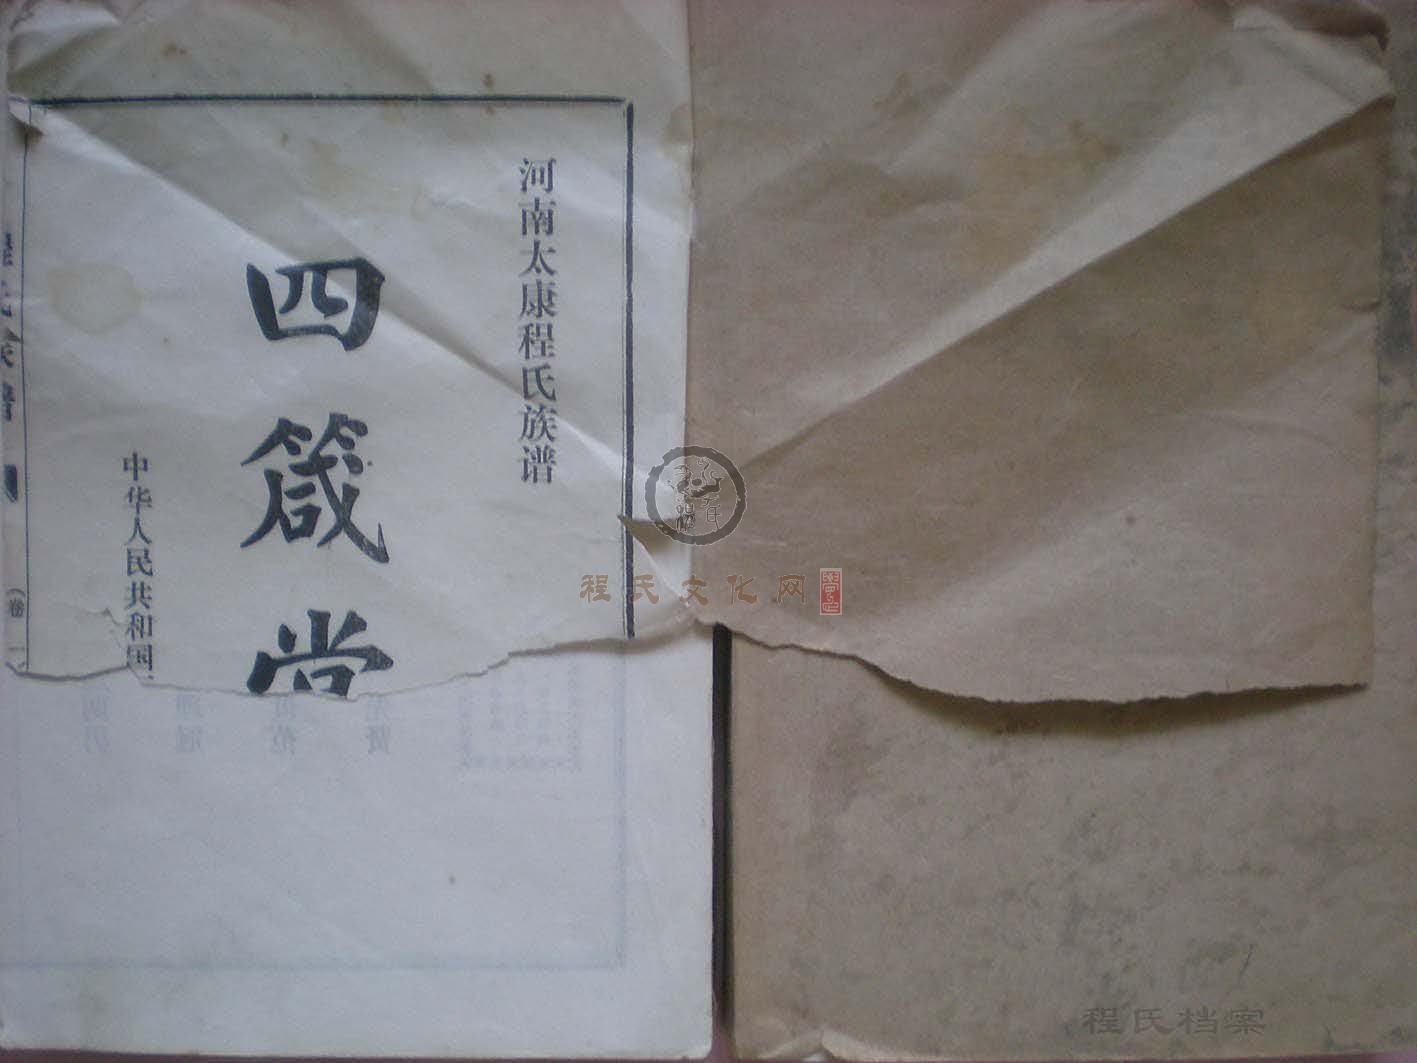 河南太康程氏族谱
四箴堂
中华人民共和国
程氏族谱
(卷一
程氏文化网
程氏档案